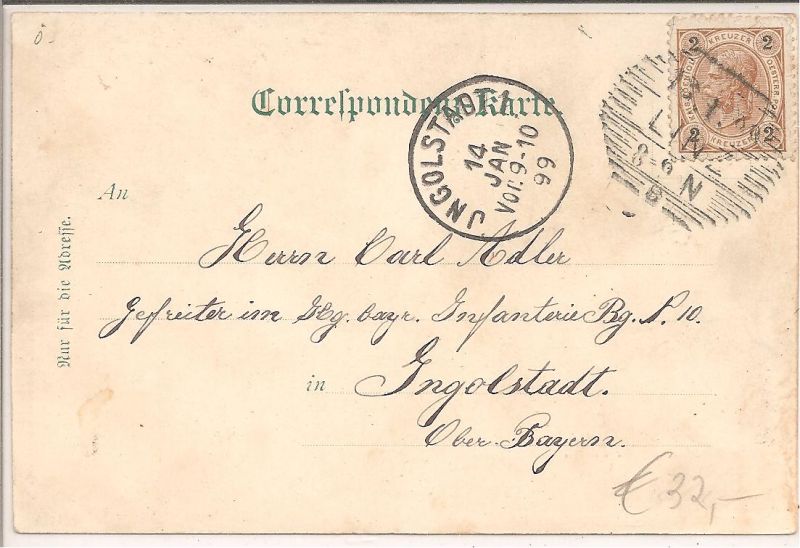 2 KREUZER 2
2 KREUZER 2
Correspondenz-Karte.
JNGOLSTADT 1.
14
JAN
Vor.9-10
99
8-6
N
An
Herrn Carl Adler
Gefreiter im Kg. bayr. Infanterie Rg. N. 10.
in Ingolstadt.
Ober-Bayern.
Nur für die Adresse.
€ 32,-